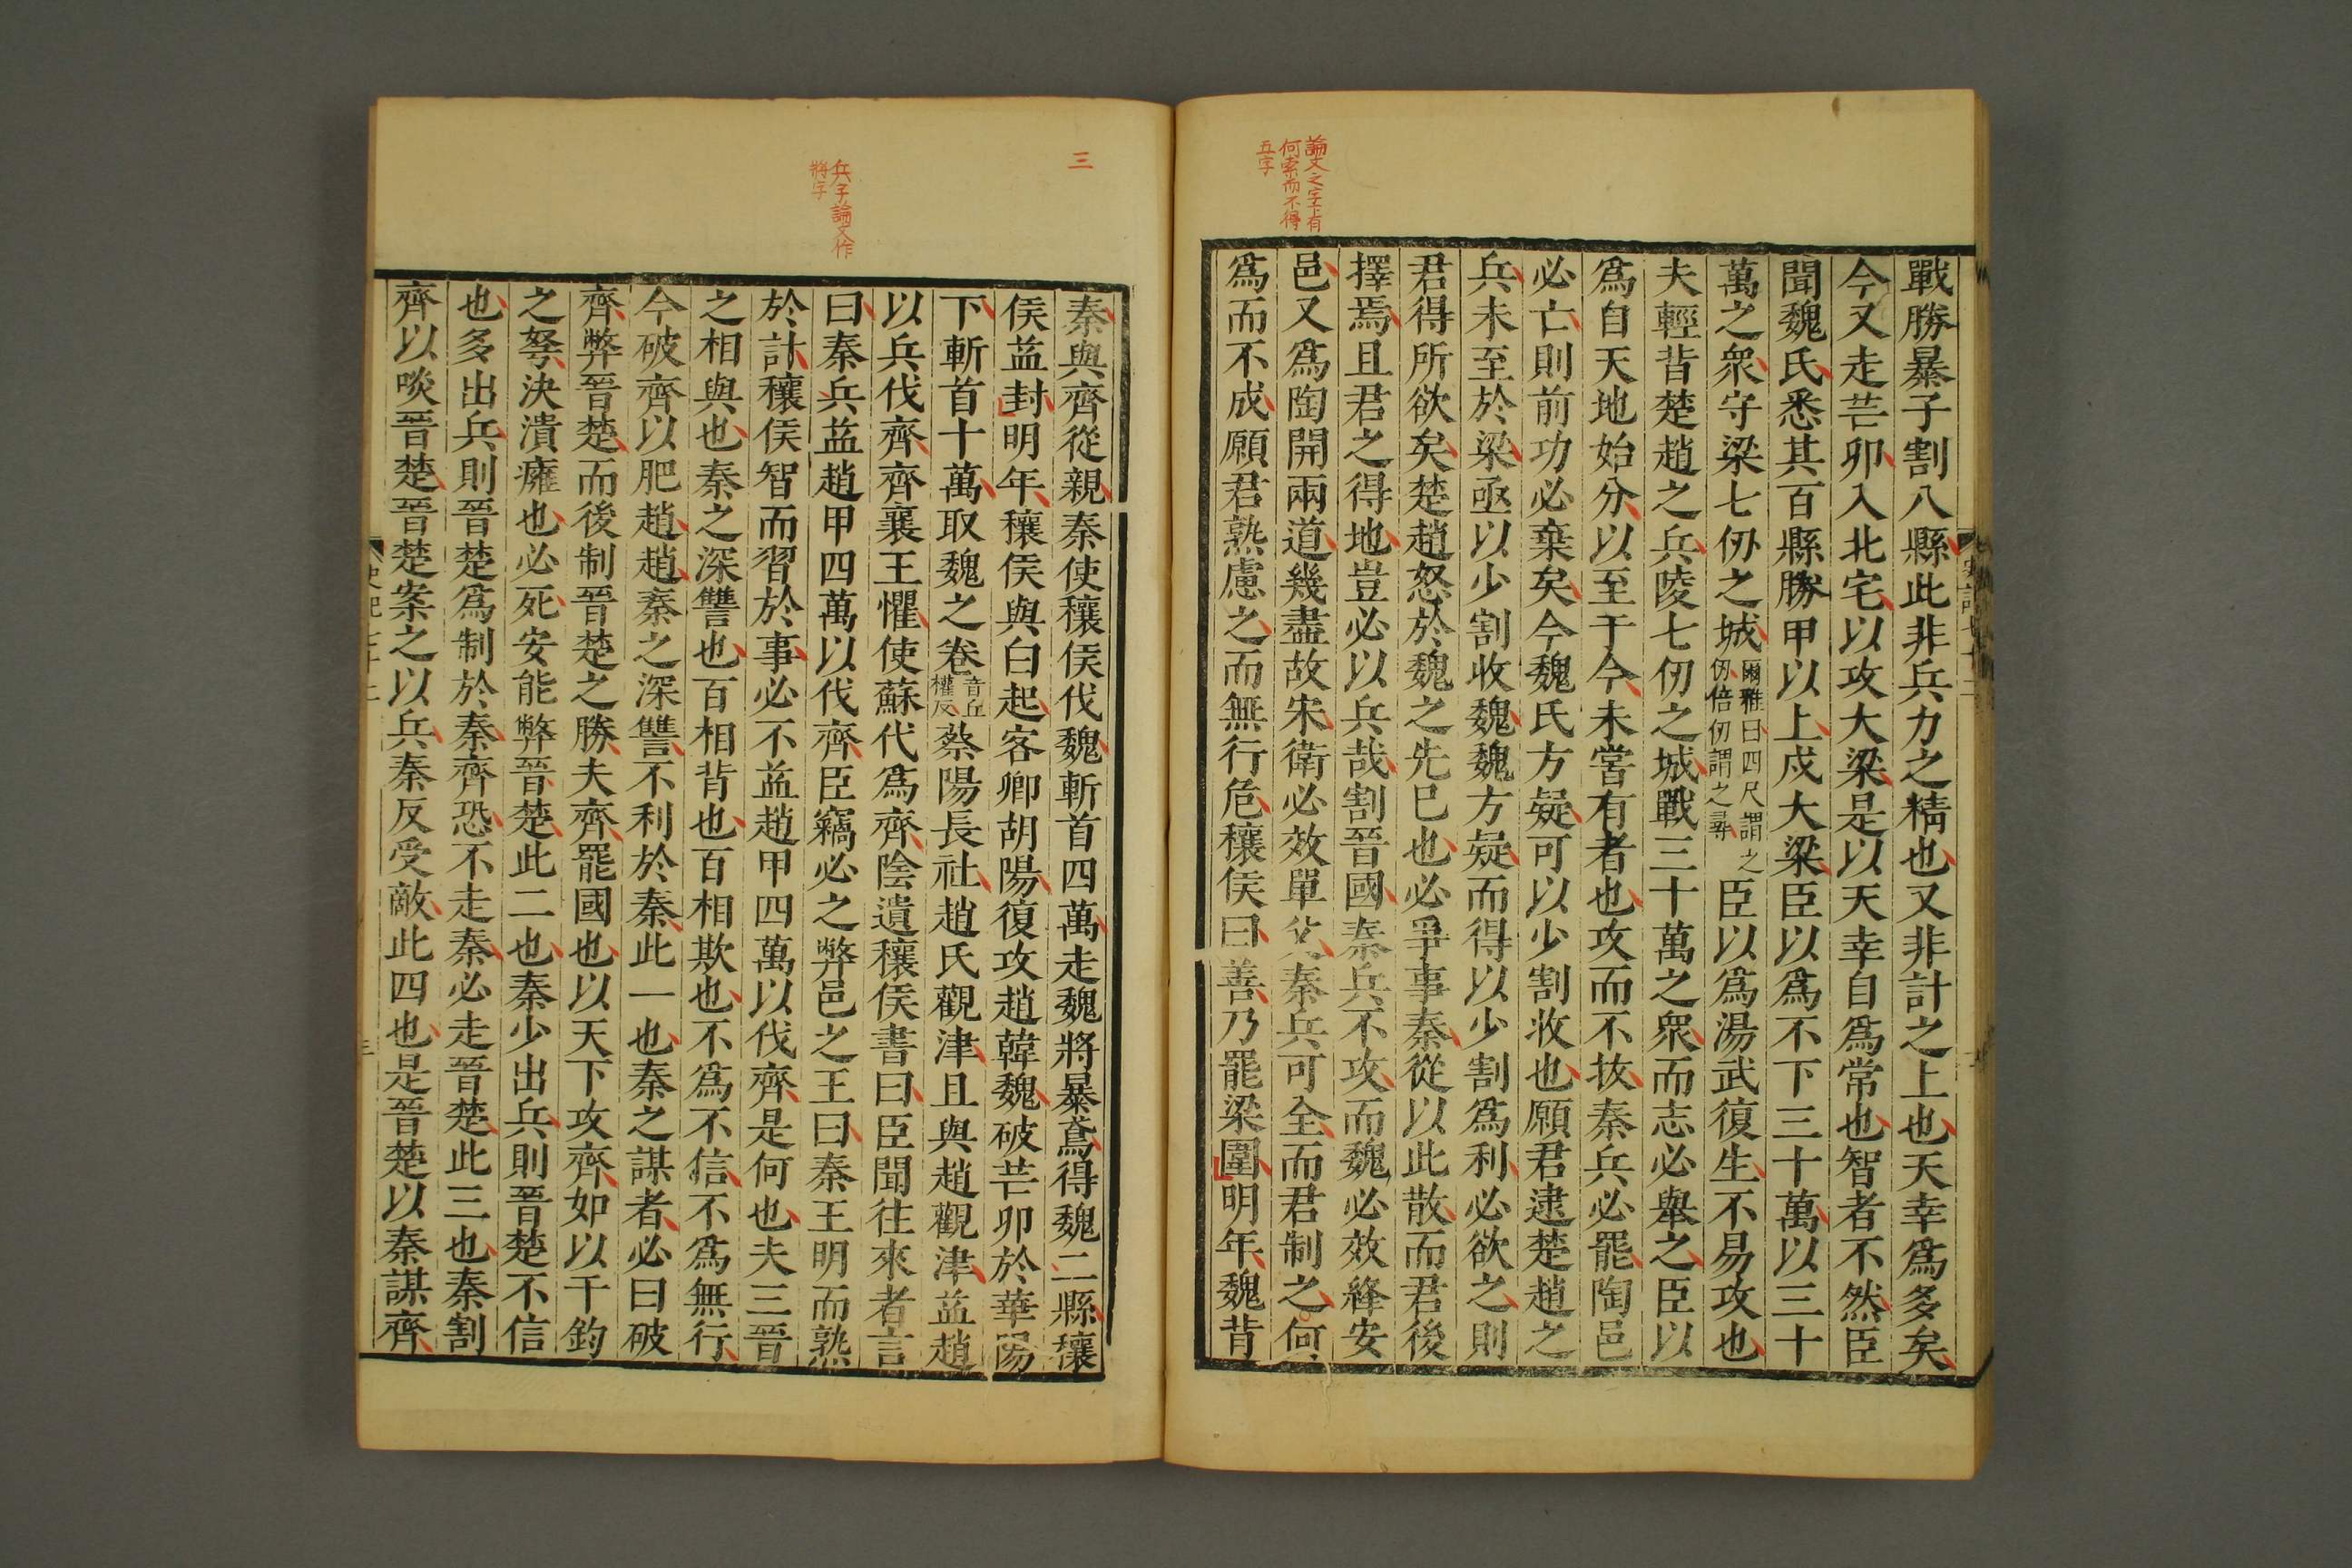 論文之字上有
何索而不得
五字
戰勝暴子割八縣此非兵力之精也又非計之上也天幸爲多矣
今又走芒卯入北宅以攻大梁是以天幸自爲常也智者不然臣
聞魏氏悉其百縣勝甲以上戍大梁臣以爲不下三十萬以三十
萬之衆守梁七仞之城爾雅曰四尺謂之仞倍仞謂之尋臣以爲湯武復生不易攻也
夫輕背楚趙之兵陵七仞之城戰三十萬之衆而志必舉之臣以
爲自天地始分以至于今未嘗有者也攻而不拔秦兵必罷陶邑
必亡則前功必棄矣今魏氏方疑可以少割收也願君逮楚趙之
兵未至於梁亟以少割收魏魏方疑而得以少割爲利必欲之則
君得所欲矣楚趙怒於魏之先已也必爭事秦從以此散而君後
擇焉且君之得地豈必以兵哉割晉國秦兵不攻而魏必效絳安
邑又爲陶開兩道幾盡故宋衛必效單父秦兵可全而君制之何
爲而不成願君熟慮之而無行危穰侯曰善乃罷梁圍明年魏背
三
兵字論文作
將字
秦與齊從親秦使穰侯伐魏斬首四萬走魏將暴鳶得魏二縣穰
侯益封明年穰侯與白起客卿胡陽復攻趙韓魏破芒卯於華陽
下斬首十萬取魏之卷音丘權反蔡陽長社趙氏觀津且與趙觀津益趙
以兵伐齊齊襄王懼使蘇代爲齊陰遺穰侯書曰臣聞往來者言
曰秦兵益趙甲四萬以伐齊臣竊必之弊邑之王曰秦王明而熟
於計穰侯智而習於事必不益趙甲四萬以伐齊是何也夫三晉
之相與也秦之深讐也百相背也百相欺也不爲不信不爲無行
今破齊以肥趙趙秦之深讐不利於秦此一也秦之謀者必曰破
齊弊晉楚而後制晉楚之勝夫齊罷國也以天下攻齊如以千鈞
之弩決潰癰也必死安能弊晉楚此二也秦少出兵則晉楚不信
也多出兵則晉楚爲制於秦齊恐不走秦必走晉楚此三也秦割
齊以啖晉楚晉楚案之以兵秦反受敵此四也是晉楚以秦謀齊